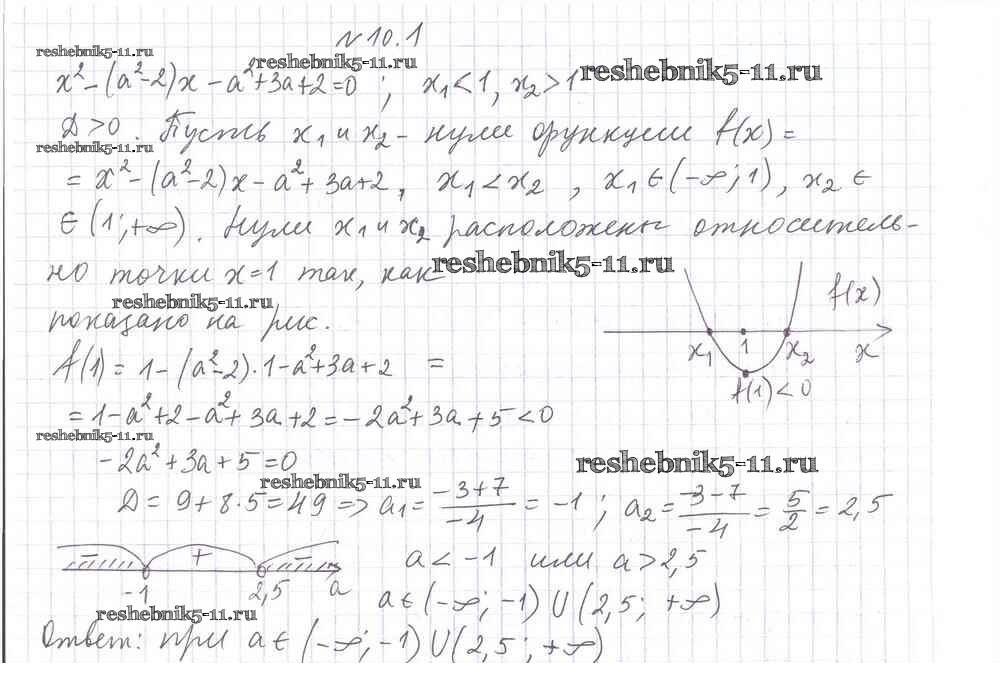 №10.1
reshebnik5-11.ru
reshebnik5-11.ru
reshebnik5-11.ru
x²-(a²-2)x-a²+3a+2=0 ; x₁<1, x₂>1
D>0. Пусть x₁ и x₂ - нули функции f(x)=
reshebnik5-11.ru
= x²-(a²-2)x-a²+3a+2, x₁<x₂, x₁∈(-∞;1), x₂∈
∈(1;+∞). Нули x₁ и x₂ расположены относитель-
но точки x=1 так, как
reshebnik5-11.ru
reshebnik5-11.ru
показано на рис.
f(x)
x₁ 1 x₂ x
f(1)<0
f(1)=1-(a²-2)·1-a²+3a+2 =
=1-a²+2-a²+3a+2=-2a²+3a+5<0
reshebnik5-11.ru
-2a²+3a+5=0
reshebnik5-11.ru
reshebnik5-11.ru
D=9+8·5=49 => a₁= (-3+7)/(-4) = -1 ; a₂= (-3-7)/(-4) = 5/2 = 2,5
- + -
-1 2,5 a
a<-1 или a>2,5
a∈(-∞;-1)∪(2,5;+∞)
reshebnik5-11.ru
Ответ: при a∈(-∞;-1)∪(2,5;+∞)